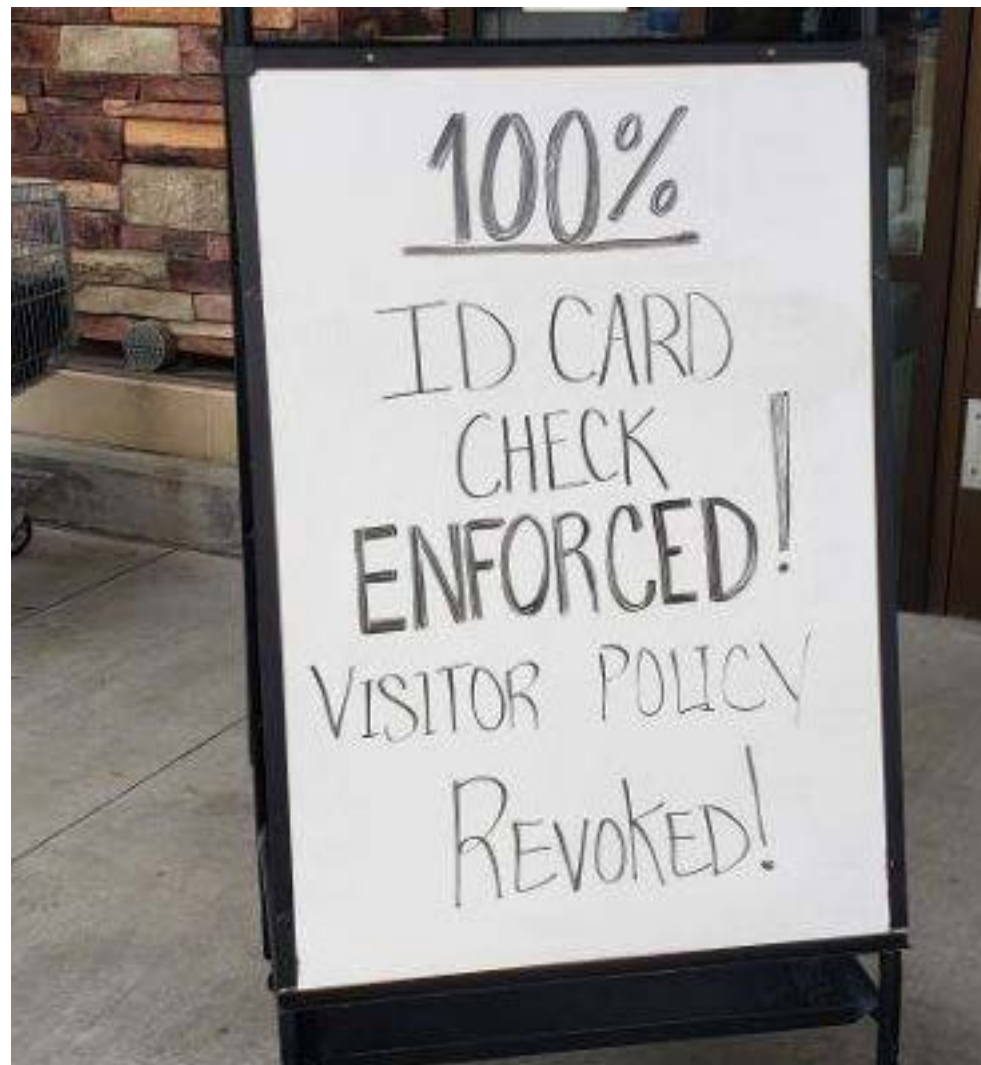 100%
ID CARD
CHECK
ENFORCED!
VISITOR POLICY
REVOKED!